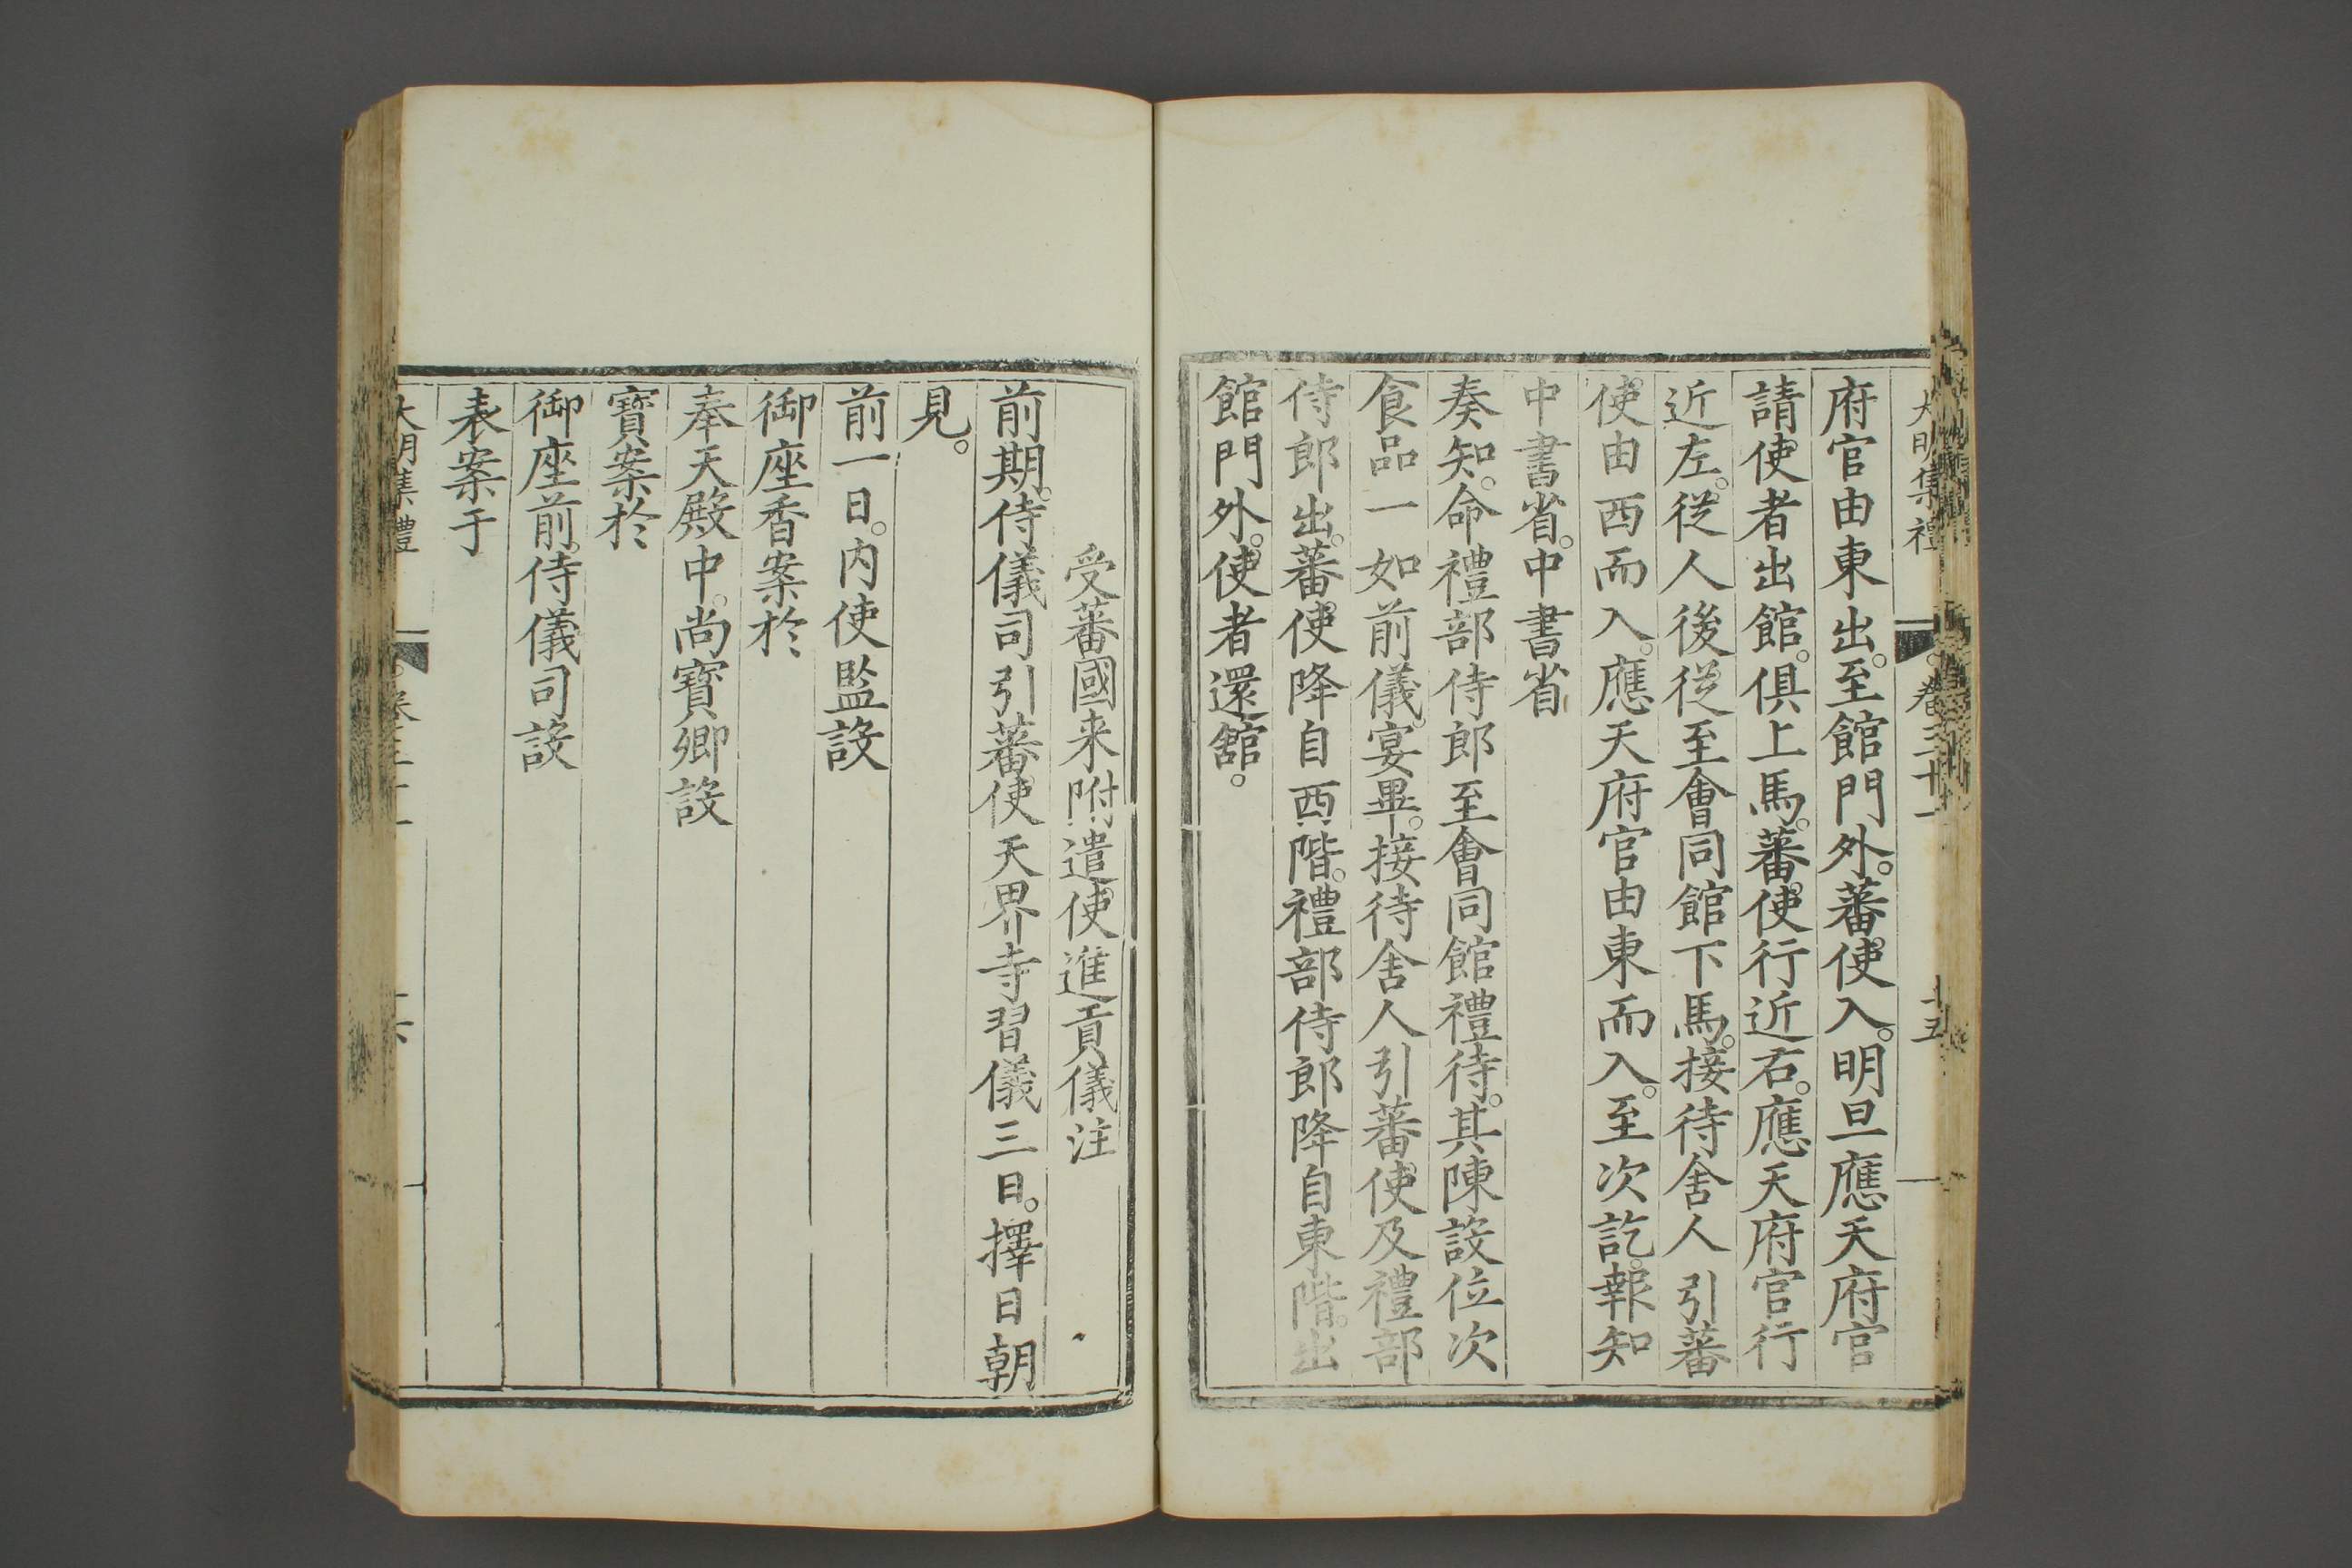 大明集禮 卷三十一 十五
府官由東出。至館門外。蕃使入。明旦應天府官
請使者出館。俱上馬。蕃使行近右。應天府官行
近左。從人後從至會同館下馬。接待舍人引蕃
使由西而入。應天府官由東而入。至次訖。報知
中書省。中書省
奏知。命禮部侍郎至會同館禮待。其陳設位次
食品一如前儀。宴畢。接待舍人引蕃使及禮部
侍郎出。蕃使降自西階。禮部侍郎降自東階。出
館門外。使者還舘。
受蕃國来附遣使進貢儀注
前期。侍儀司引蕃使天界寺習儀三日。擇日朝
見。
前一日。内使監設
御座香案於
奉天殿中。尚寶卿設
寶案於
御座前。侍儀司設
表案于
大明集禮